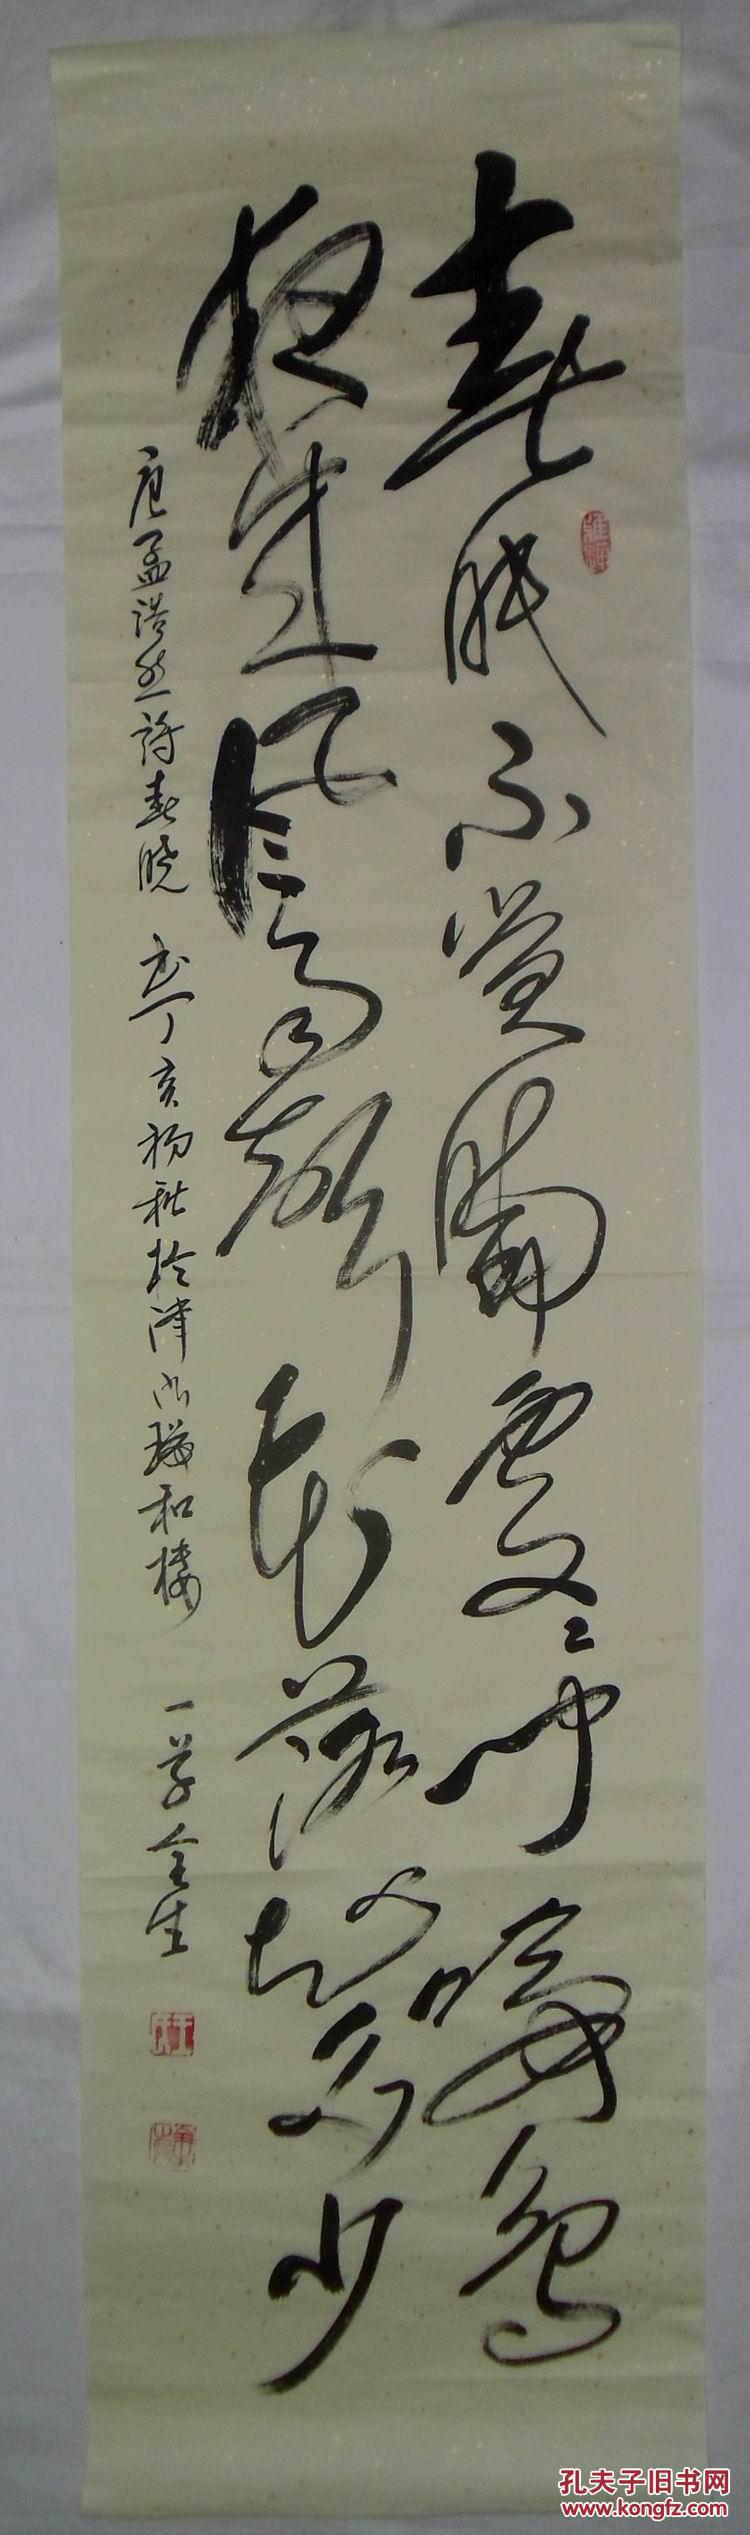 春眠不觉晓处处闻啼鸟
夜来风雨声花落知多少
唐孟浩然诗春晓 书丁亥初秋于津沽瑞和楼 一学全生
孔夫子旧书网
www.kongfz.com